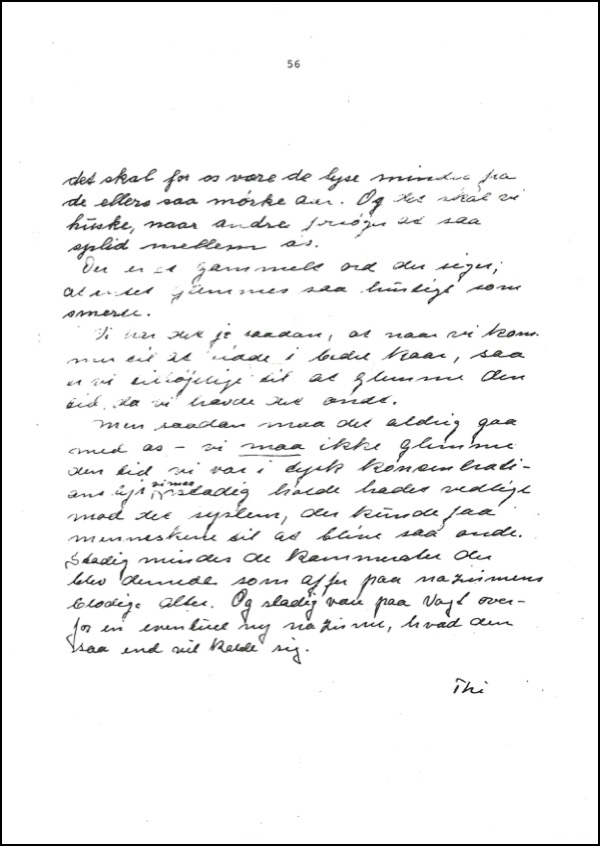 56
det skal for os være de lyse minder fra
de ellers saa mørke aar. Og det skal vi
huske, naar andre prøger at saa
splid mellem os.
Der er et gammelt ord der siger,
at intet glemmes saa hurtigt som
smerte.
Vi har det jo saadan, at naar vi kom-
mer til at sidde i bedre kaar, saa
er vi tilbøjelige til at glemme den
tid, da vi havde det ondt.
Men saadan maa det aldrig gaa
med os – vi maa ikke glemme
den tid vi var i tysk koncentrati-
ons lejr, vi maa stadig holde hadet vedlige
mod det system, der kunde faa
menneskene til at blive saa onde.
Stadig mindes de kammerater der
blev dernede som offer paa nazismens
blodige alter. Og stadig være paa vagt over-
for en eventuel ny nazisme, hvad den
saa end vil kalde sig.
Thi